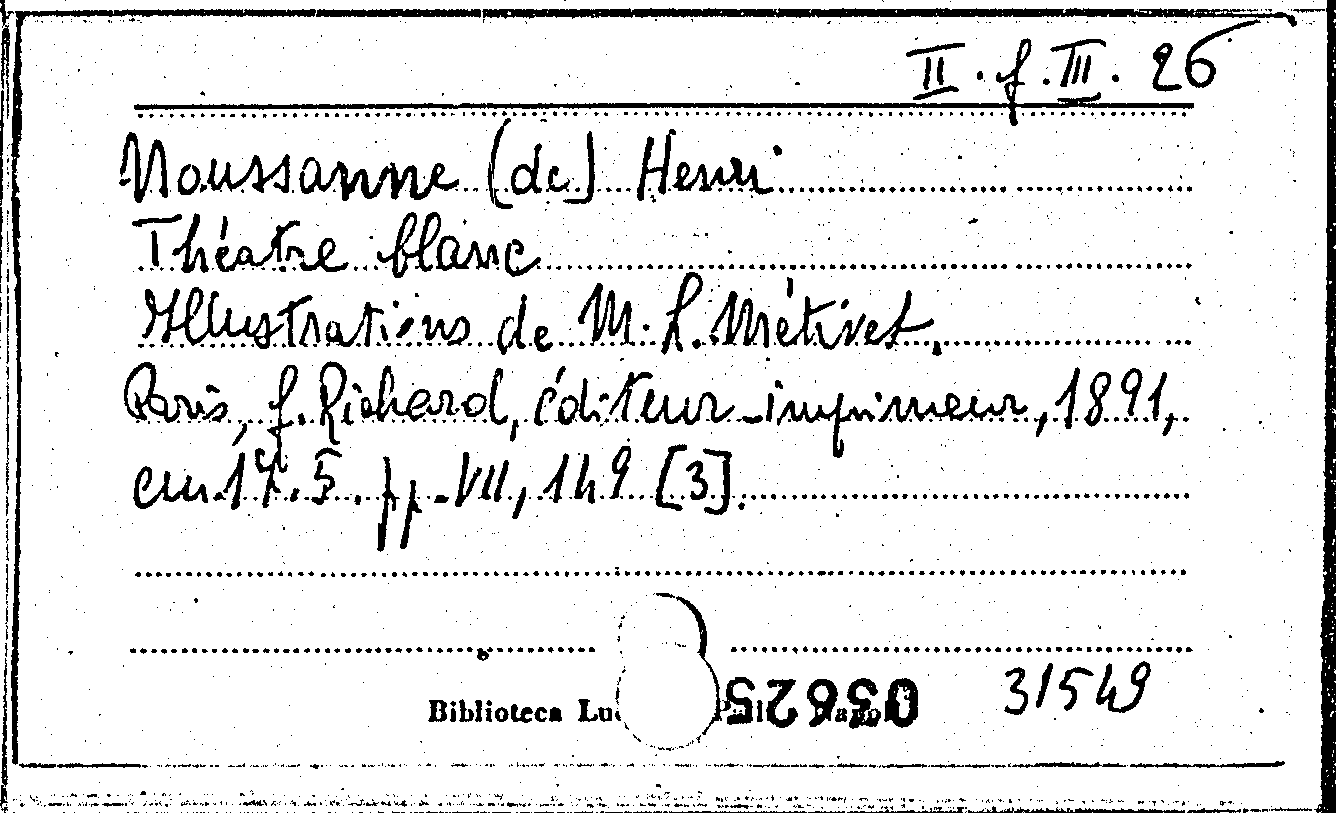 II. f. III. 26
Noussanne (de) Henri
Théatre blanc
Illustrations de M. L. Métivet.
Paris, f. Richard, éditeur-imprimeur, 1891,
cm. 17.5. pp. VII, 149 [3].
Biblioteca
31549